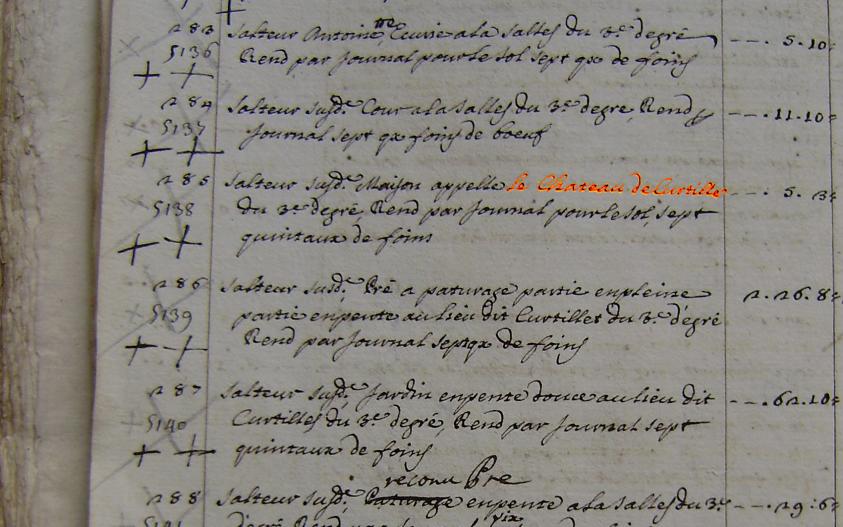 283 Salteur Antoine Me Ecurie a la Salles du 3.e degré --- . 5. 10
5136 Rend par Journal pour le sol sept qx de foins
284 Salteur susd.t Cour a la Salles du 3.e degré, Rend --- . 11. 10
5137 Journal sept qx foins de boeuf
285 Salteur susd.t Maison appelle le Chateau de Curtille --- . 5. 3
5138 du 3.e degré, Rend par Journal pour le sol, sept
quintaux de foins
286 Salteur susd.t Pré a paturage partie en pleine 2. 26. 8
5139 partie en pente au lieu dit Curtilles du 3.e degré
Rend par Journal sept qx de foins
287 Salteur susd.t Jardin en pente douce au lieu dit --- . 62. 10
5140 Curtilles du 3.e degré, Rend par Journal sept
quintaux de foins
reconu Pre
288 Salteur susd.t Paturage en pente a la Salles du 3.e --- . 29. 6
degré Rend